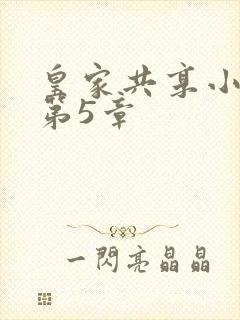 皇家共享小
第5章
一閃亮晶晶